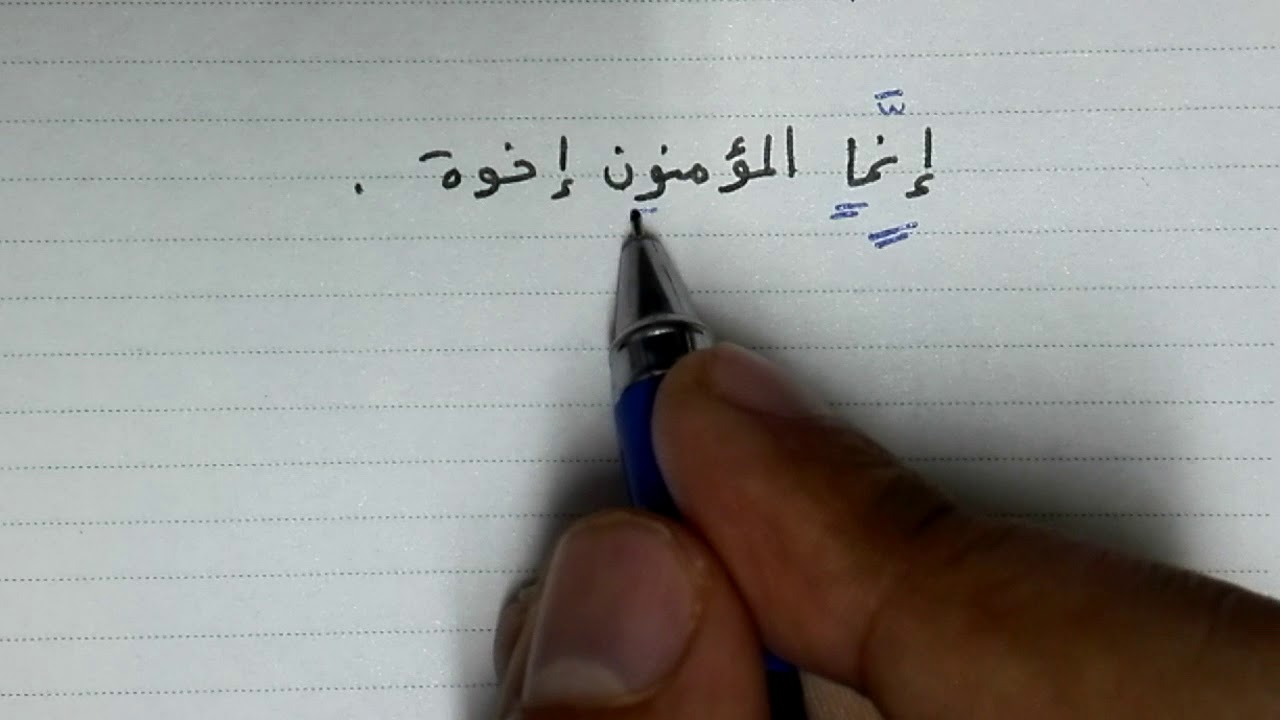 إنّما المؤمنون إخوة .